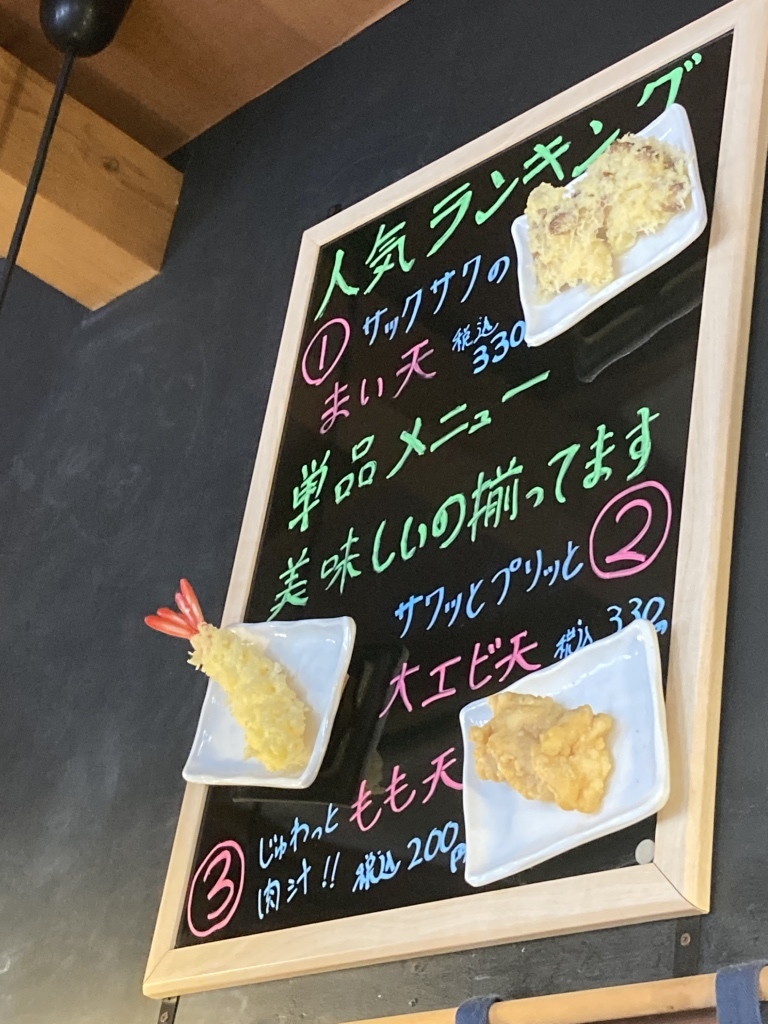 人気ランキング
① サックサクの
まい天 税込 330
単品メニュー
美味しいの揃ってます
サクッとプリッと ②
大エビ天 税込 330円
③ じゅわっと もも天
肉汁!! 税込 200円